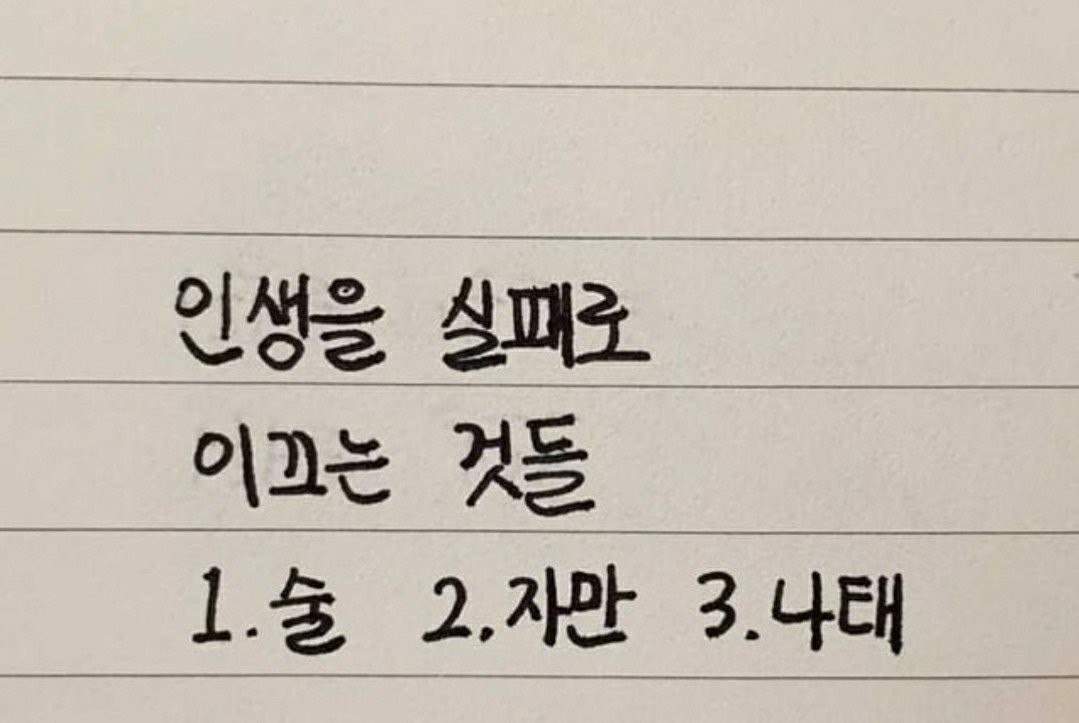 인생을 실패로
이끄는 것들
1. 술 2. 자만 3. 나태